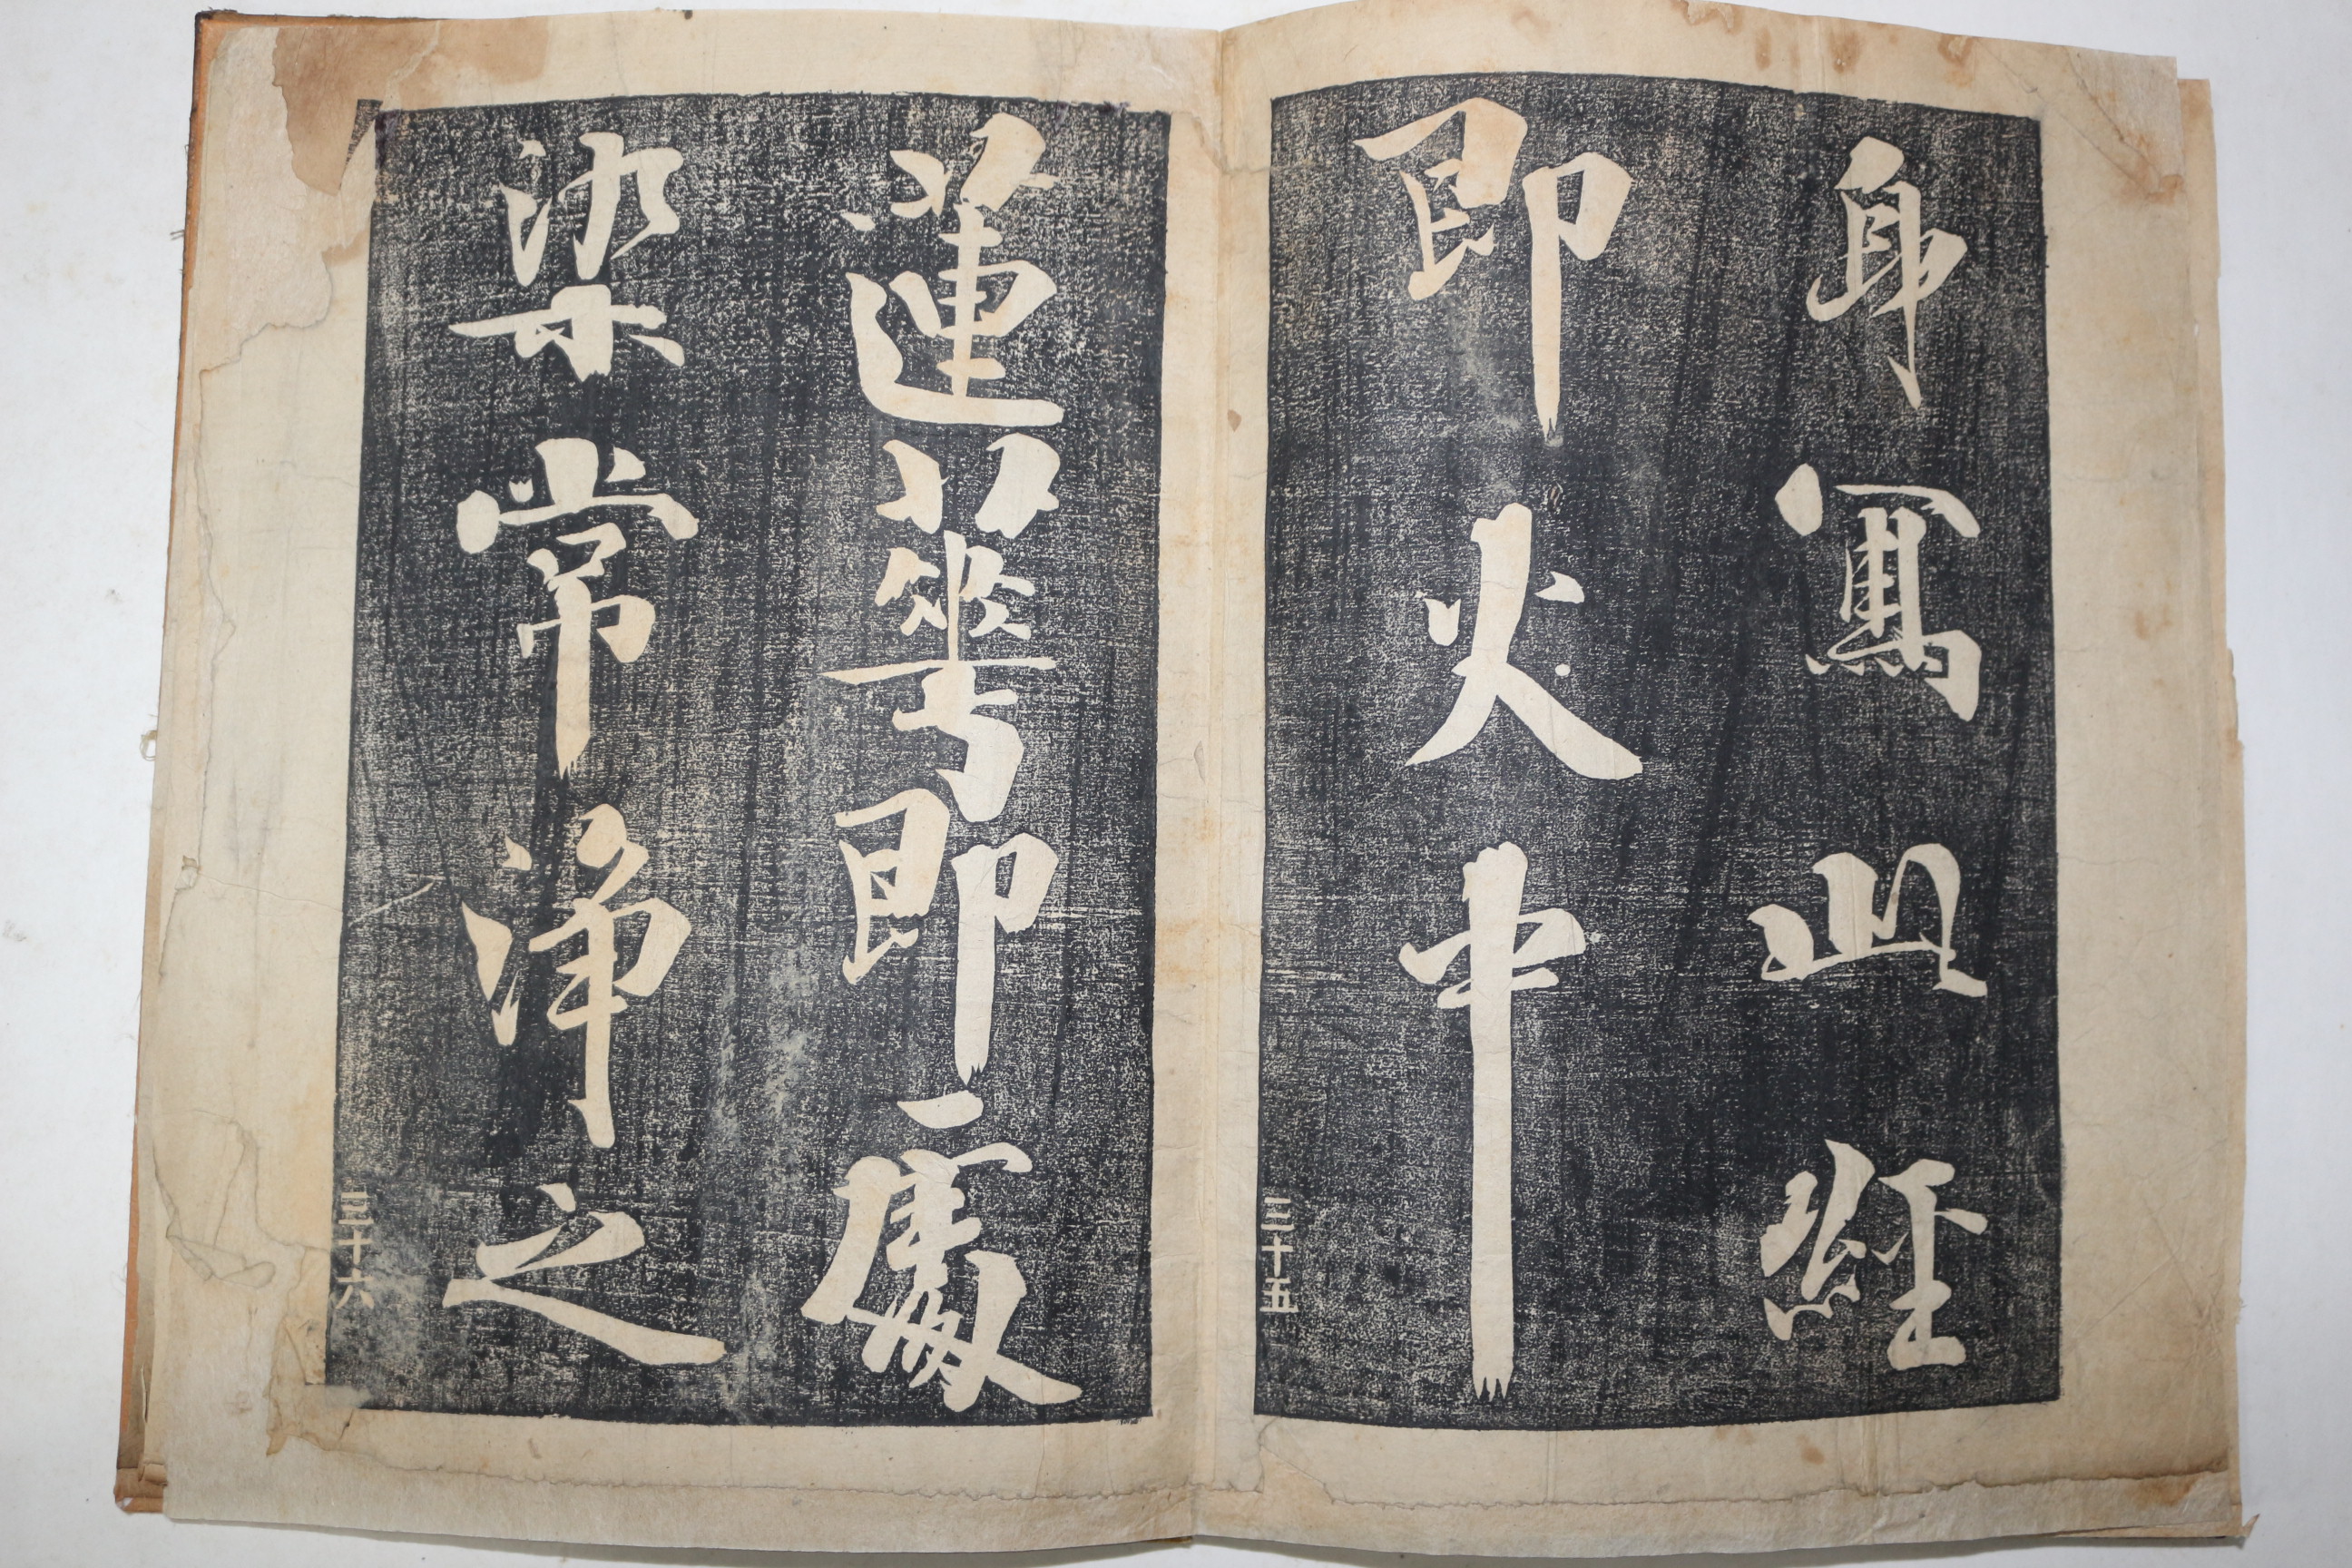 身寫此經
即火中
三十五
蓮華即處
染常淨之
三十六